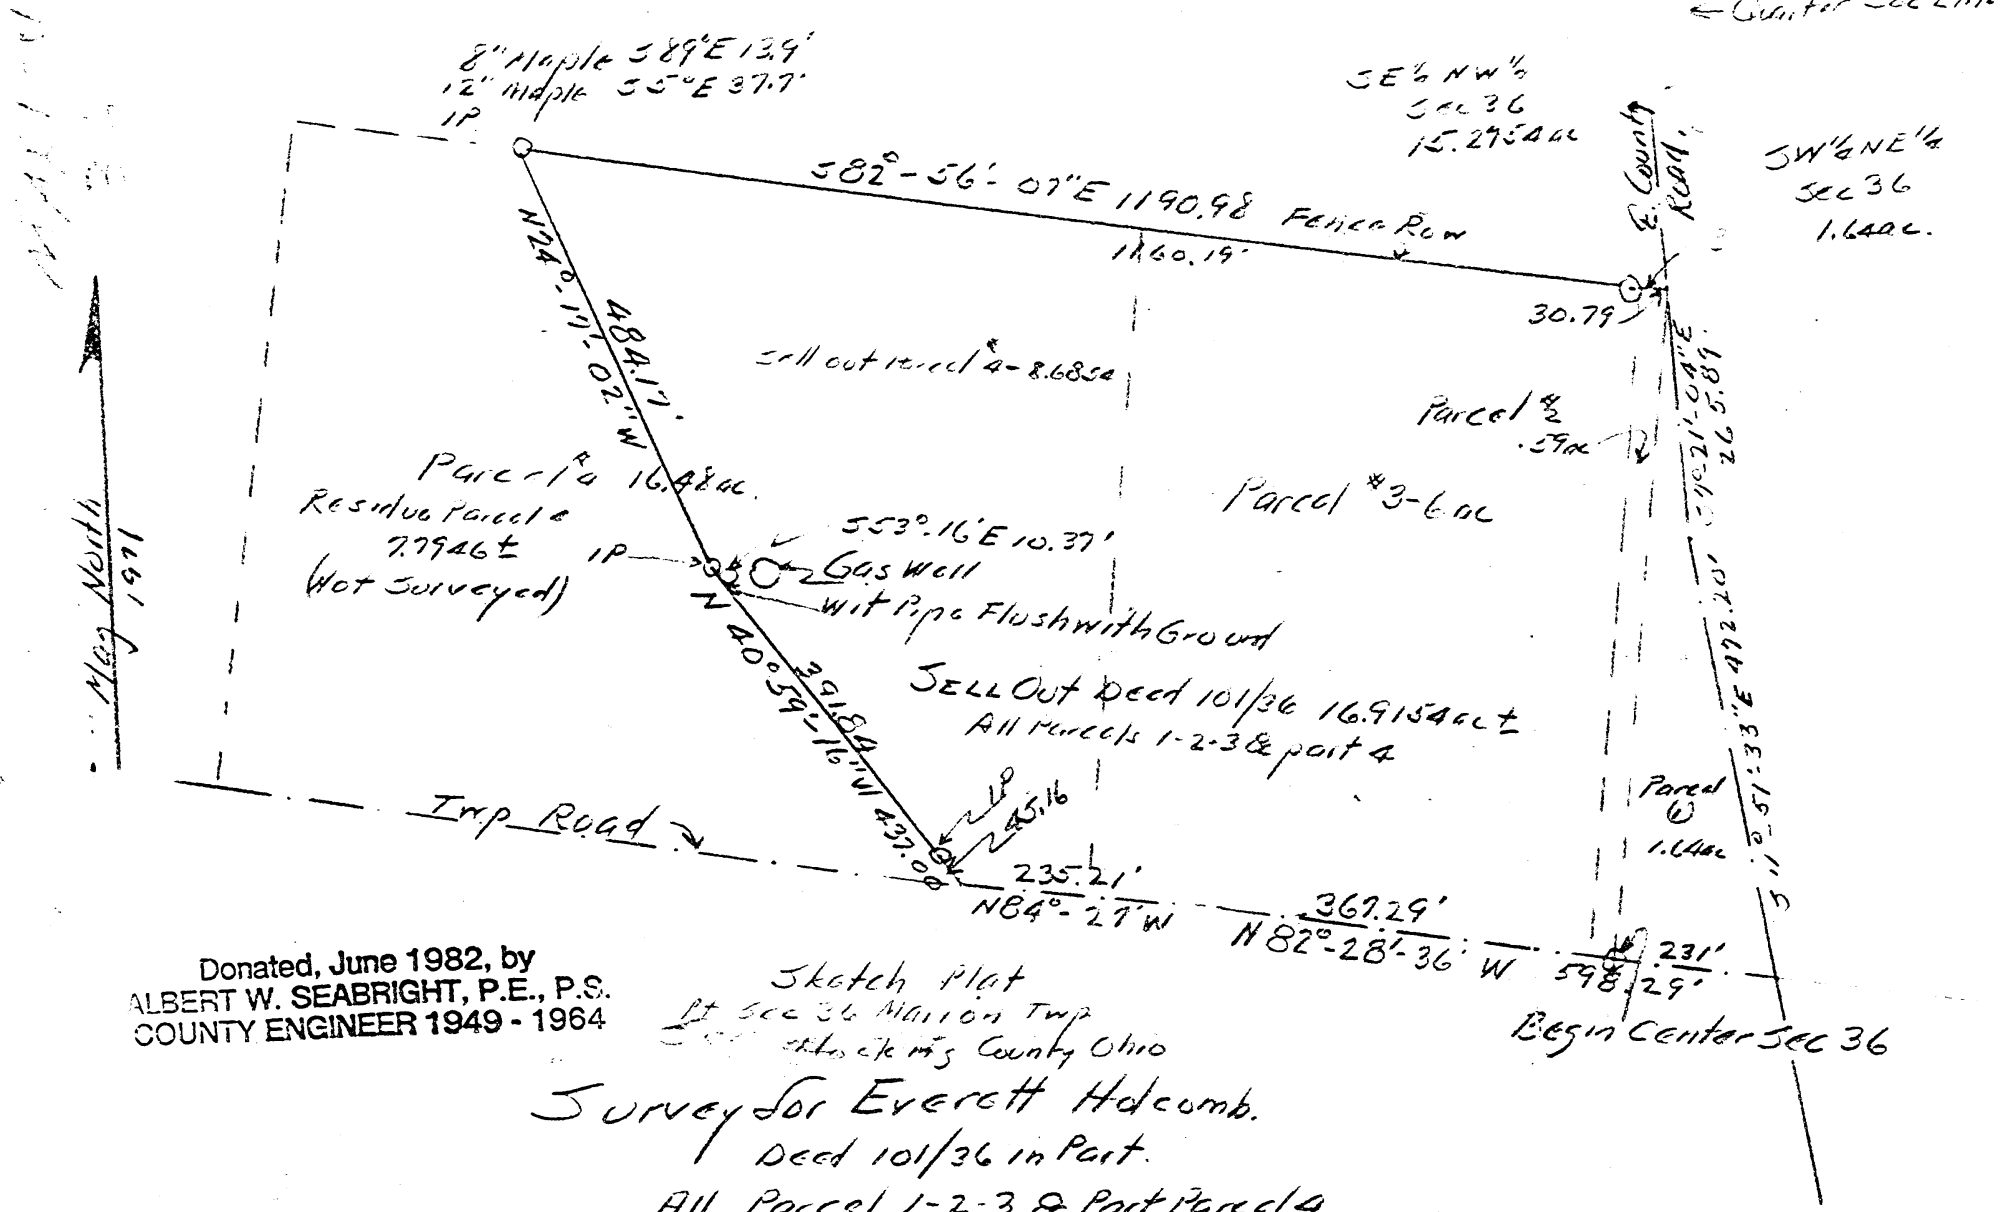 8" Maple S 89°E 13.9'
12" Maple S 5°E 37.7'
IP
SE¼ NW¼
Sec 36
15.2754 ac
E. County
Road
SW¼ NE¼
Sec 36
1.64ac.
S82°-56'-07"E 1190.98 Fence Row
1160.19'
30.79
N24°-17'-02"W
484.17'
Sell out Parcel #4-8.685a
Parcel #2
.59ac
S9°-21'-04"E
265.89'
Parcel #4 16.48ac.
Residue Parcel 4
7.7946±
(Not Surveyed)
IP
S53°-16'E 10.37'
Gas Well
Wit Pipe Flush with Ground
Parcel #3-6ac
Mag North
1971
N 40°-59'-16"W 437.00
391.84
SELL Out Deed 101/36 16.9154ac±
All Parcels 1-2-3 & part 4
S11°-51'-33"E 472.20'
Parcel
①
1.64ac
IP
45.16
Twp Road
235.21'
N84°-27'W
367.29'
N 82°-28'-36" W
598.29'
231'
Begin Center Sec 36
Donated, June 1982, by
ALBERT W. SEABRIGHT, P.E., P.S.
COUNTY ENGINEER 1949 - 1964
Sketch Plat
Pt Sec 36 Marion Twp
Hocking County Ohio
Survey for Everett Holcomb.
Deed 101/36 in Part.
All Parcel 1-2-3 & Part Parcel 4